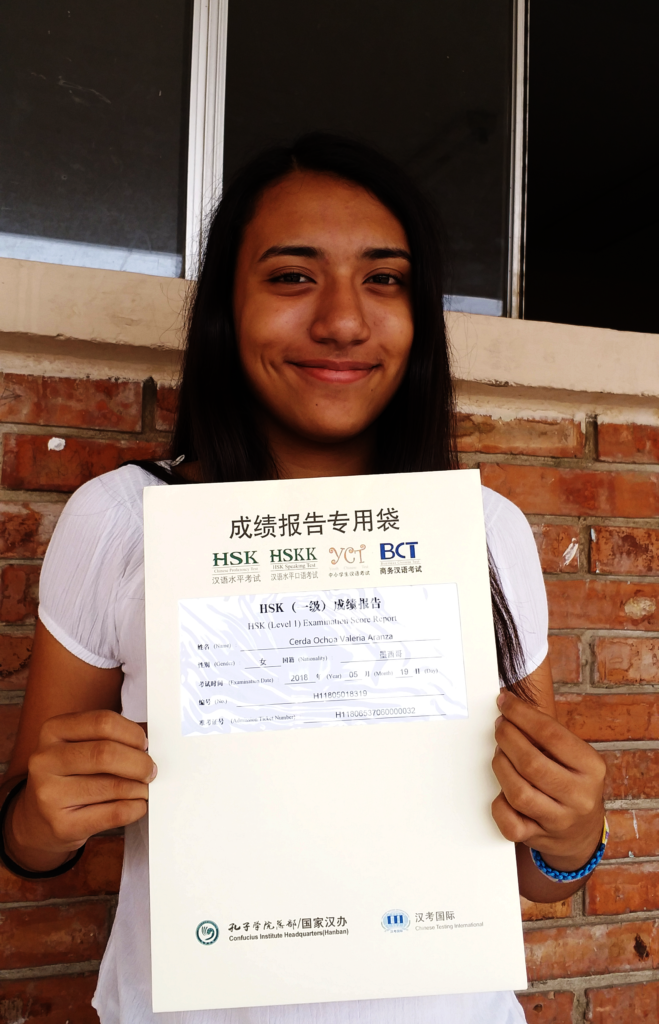 成绩报告专用袋
HSK HSKK YCT BCT
汉语水平考试 HSK Speaking Test 汉语水平口语考试 中小学生汉语考试 商务汉语考试
HSK（一级）成绩报告
HSK (Level 1) Examination Score Report
姓名 (Name) Cerda Ochoa Valeria Aranza
性别 (Gender) 女 国籍 (Nationality) 墨西哥
考试时间 (Examination Date) 2018 年 (Year) 05 月 (Month) 19 日 (Day)
编号 (No.) H11805018319
准考证号 (Admission Ticket Number)
孔子学院总部/国家汉办 汉考国际
Confucius Institute Headquarters(Hanban) Chinese Testing International